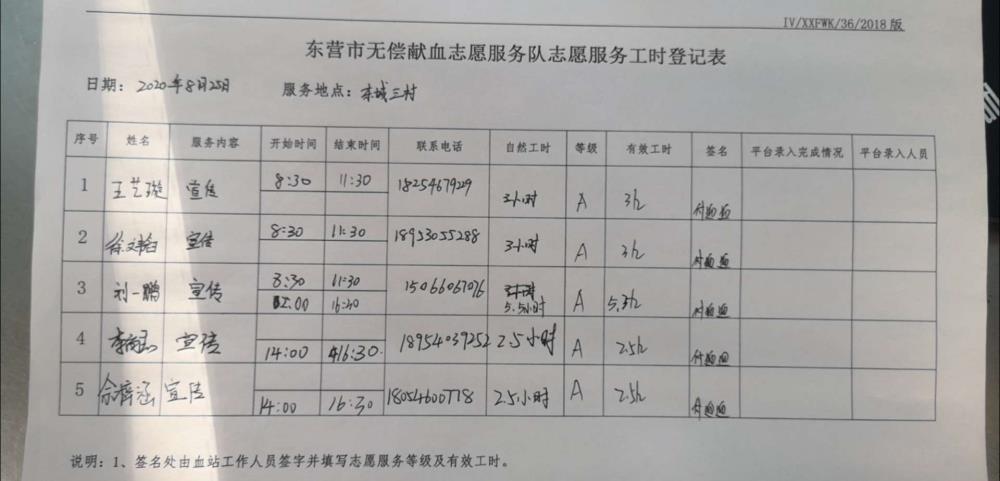 IV/XXFWK/36/2018版
东营市无偿献血志愿服务队志愿服务工时登记表
日期：2020年8月25日 服务地点：东城三村
序号 姓名 服务内容 开始时间 结束时间 联系电话 自然工时 等级 有效工时 签名 平台录入完成情况 平台录入人员
1 王艺璇 宣传 8:30 11:30 18254679229 3小时 A 3h
2 徐文 宣传 8:30 11:30 18953055288 3小时 A 3h
3 刘一鹏 宣传 8:30 11:30 15066067076 5.5小时 A 5.5h
14:00 16:30
4 李 宣传 14:00 16:30 18954039252 2.5小时 A 2.5h
5 徐梓涵 宣传 14:00 16:30 18054600778 2.5小时 A 2.5h
说明：1、签名处由血站工作人员签字并填写志愿服务等级及有效工时。